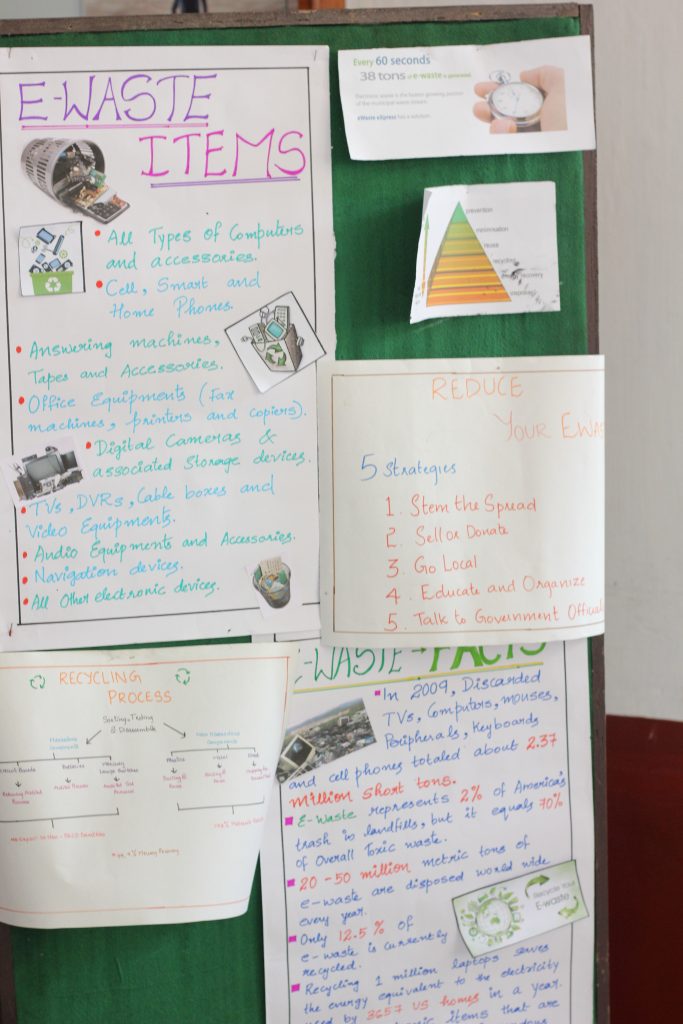 E-WASTE
ITEMS
All Types of Computers
and accessories.
Cell, Smart and
Home Phones.
Answering machines,
Tapes and Accessories.
Office Equipments (Fax
machines, printers and copiers).
Digital Cameras &
associated Storage devices.
TVs, DVRs, Cable boxes and
Video Equipments.
Audio Equipments and Accessories.
Navigation devices.
All Other electronic devices.
Every 60 seconds
38 tons of e-waste is generated.
Electronic waste is the fastest growing portion
of the municipal waste stream.
eWaste eXpress has a solution.
prevention
minimisation
reuse
recycling
recovery
disposal
REDUCE
YOUR EWAS
5 Strategies
1. Stem the Spread
2. Sell or Donate
3. Go Local
4. Educate and Organize
5. Talk to Government Official
RECYCLING
PROCESS
Sorting, Testing
& Disassemble
E-WASTE → FACTS
In 2009, Discarded
TVs, Computers, mouses,
Peripherals, Keyboards
and cell phones totaled about 2.37
million short tons.
E-Waste represents 2% of America's
trash in landfills, but it equals 70%
of Overall Toxic waste.
20-50 million metric tons of
e-waste are disposed world wide
every year.
Only 12.5% of
e-waste is currently
recycled.
Recycle Your
E-waste
Recycling 1 million laptops saves
the energy equivalent to the electricity
used by 3657 US homes in a year.
items that are